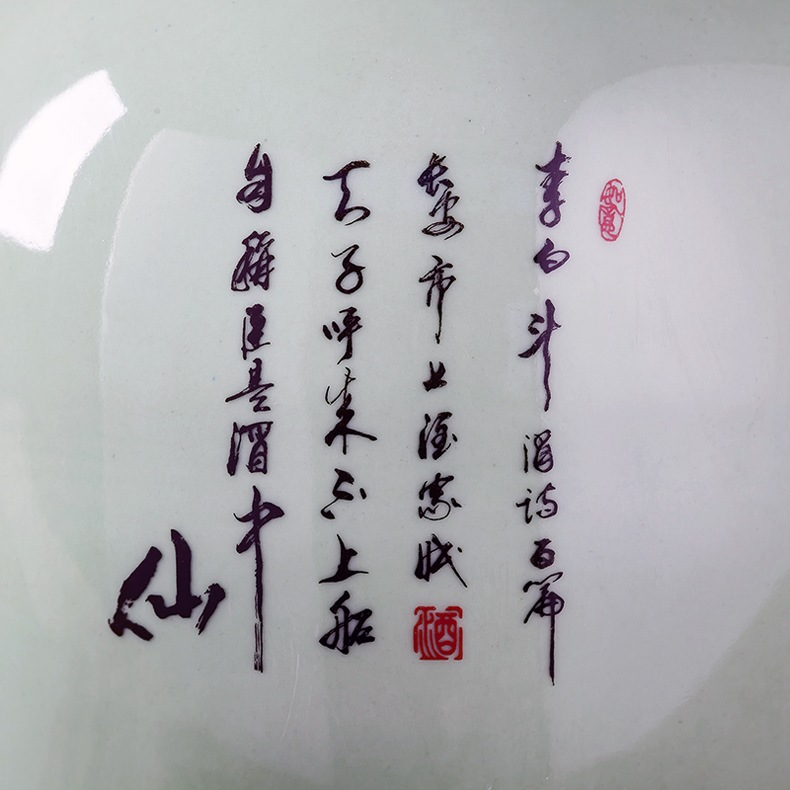 如意
李白斗酒诗百篇
长安市上酒家眠
酒
天子呼来不上船
自稱臣是酒中
仙